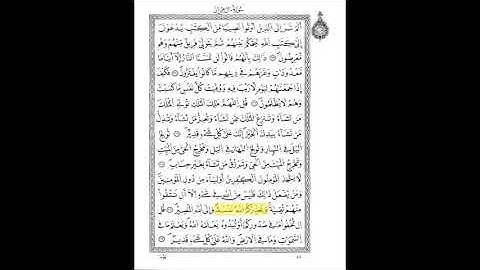 سورة آل عمران
ألم تر إلى الذين أوتوا نصيبا من الكتب يدعون
إلى كتب الله ليحكم بينهم ثم يتولى فريق منهم وهم
معرضون ذلك بأنهم قالوا لن تمسنا النار إلا أياما
معدودات وغرهم في دينهم ما كانوا يفترون فكيف
إذا جمعنهم ليوم لا ريب فيه ووفيت كل نفس ما كسبت
وهم لا يظلمون قل اللهم ملك الملك تؤتي الملك
من تشاء وتنزع الملك ممن تشاء وتعز من تشاء وتذل
من تشاء بيدك الخير إنك على كل شيء قدير تولج
اليل في النهار وتولج النهار في اليل وتخرج الحي من الميت
وتخرج الميت من الحي وترزق من تشاء بغير حساب
لا يتخذ المؤمنون الكفرين أولياء من دون المؤمنين
ومن يفعل ذلك فليس من الله في شيء إلا أن تتقوا
منهم تقية ويحذركم الله نفسه وإلى الله المصير قل
إن تخفوا ما في صدوركم أو تبدوه يعلمه الله ويعلم ما في
السموات وما في الأرض والله على كل شيء قدير